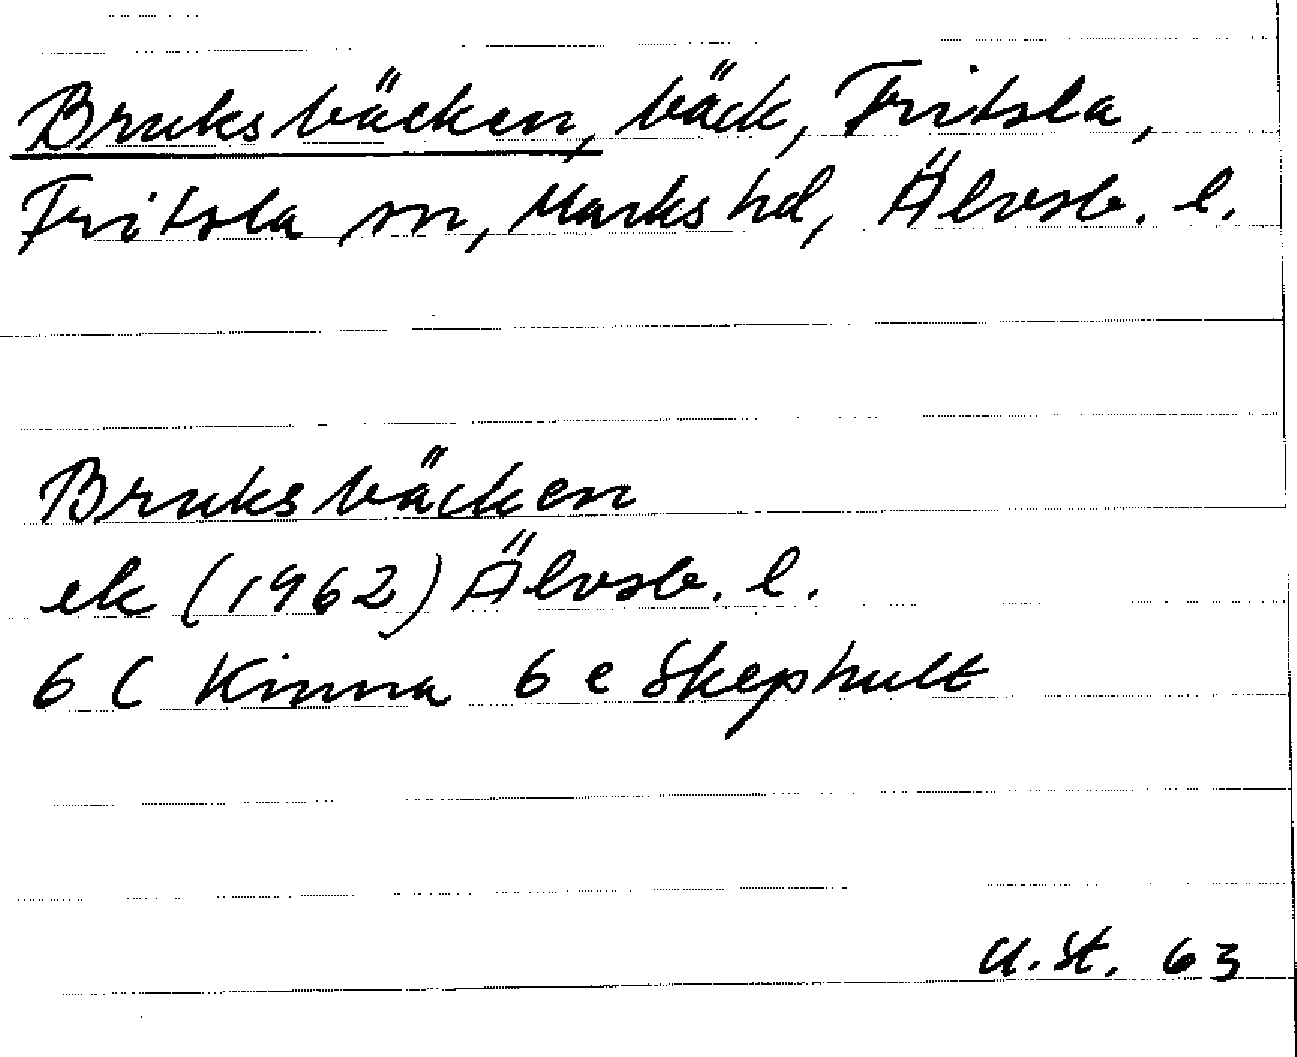 Bruksbäcken, bäck, Fritsla,
Fritsla sn, Marks hd, Älvsb. l.
Bruksbäcken
ek (1962) Älvsb. l.
6 C Kinna 6 e Skephult
U.St. 63